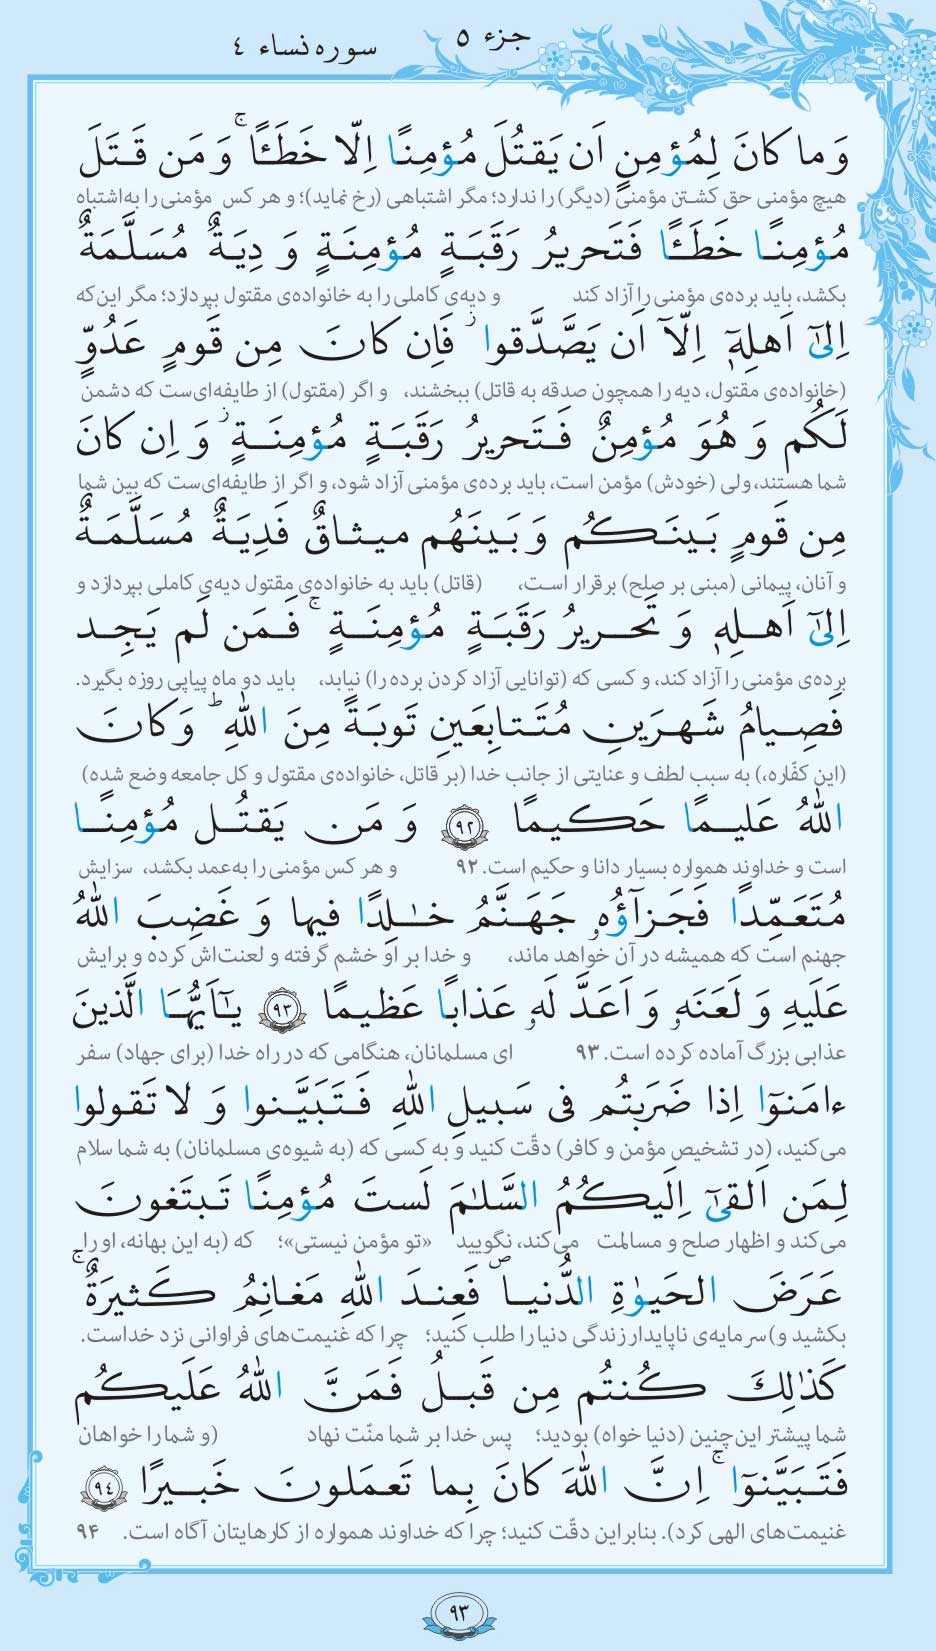 جزء ۵
سوره نساء ۴
وَ ما كانَ لِمُؤمِنٍ اَن يَقتُلَ مُؤمِنًا اِلّا خَطَـًٔا ۚ وَ مَن قَتَلَ
هیچ مؤمنی حق کشتن مؤمنی (دیگر) را ندارد؛ مگر اشتباهی (رخ نماید)؛ و هر کس مؤمنی را به‌اشتباه
مُؤمِنًا خَطَـًٔا فَتَحريرُ رَقَبَةٍ مُؤمِنَةٍ وَ دِيَةٌ مُسَلَّمَةٌ
بکشد، باید برده‌ی مؤمنی را آزاد کند و دیه‌ی کاملی را به خانواده‌ی مقتول بپردازد؛ مگر این‌که
اِلىٰٓ اَهلِهٖٓ اِلّآ اَن يَصَّدَّقوا ۚ فَاِن كانَ مِن قَومٍ عَدُوٍّ
(خانواده‌ی مقتول، دیه را همچون صدقه به قاتل) ببخشند، و اگر (مقتول) از طایفه‌ای‌ست که دشمن
لَكُم وَ هُوَ مُؤمِنٌ فَتَحريرُ رَقَبَةٍ مُؤمِنَةٍ ۖ وَ اِن كانَ
شما هستند، ولی (خودش) مؤمن است، باید برده‌ی مؤمنی آزاد شود، و اگر از طایفه‌ای‌ست که بین شما
مِن قَومٍ بَينَكُم وَ بَينَهُم ميثاقٌ فَدِيَةٌ مُسَلَّمَةٌ
و آنان، پیمانی (مبنی بر صلح) برقرار است، (قاتل) باید به خانواده‌ی مقتول دیه‌ی کاملی بپردازد و
اِلىٰٓ اَهلِهٖ وَ تَحريرُ رَقَبَةٍ مُؤمِنَةٍ ۚ فَمَن لَم يَجِد
برده‌ی مؤمنی را آزاد کند، و کسی که (توانایی آزاد کردن برده را) نیابد، باید دو ماه پیاپی روزه بگیرد.
فَصِيامُ شَهرَينِ مُتَتابِعَينِ تَوبَةً مِنَ اللهِ ؕ وَ كانَ
(این کفّاره،) به سبب لطف و عنایتی از جانب خدا (بر قاتل، خانواده‌ی مقتول و کل جامعه وضع شده)
اللهُ عَليمًا حَكيمًا ۩٩٢ وَ مَن يَقتُل مُؤمِنًا
است و خداوند همواره بسیار دانا و حکیم است. ۹۲ و هر کس مؤمنی را به‌عمد بکشد، سزایش
مُتَعَمِّدًا فَجَزآؤُهٗ جَهَنَّمُ خٰلِدًا فيها وَ غَضِبَ اللهُ
جهنم است که همیشه در آن خواهد ماند، و خدا بر او خشم گرفته و لعنت‌اش کرده و برایش
عَلَيهِ وَ لَعَنَهٗ وَ اَعَدَّ لَهٗ عَذابًا عَظيمًا ٩٣ يٰٓاَيُّهَا الَّذينَ
عذابی بزرگ آماده کرده است. ۹۳ ای مسلمانان، هنگامی که در راه خدا (برای جهاد) سفر
ءامَنوٓا اِذا ضَرَبتُم فى سَبيلِ اللهِ فَتَبَيَّنوا وَ لا تَقولوا
می‌کنید، (در تشخیص مؤمن و کافر) دقّت کنید و به کسی که (به شیوه‌ی مسلمانان) به شما سلام
لِمَن اَلقىٰٓ اِلَيكُمُ السَّلٰمَ لَستَ مُؤمِنًا تَبتَغونَ
می‌کند و اظهار صلح و مسالمت می‌کند، نگویید «تو مؤمن نیستی»؛ که (به این بهانه، او را
عَرَضَ الحَيوٰةِ الدُّنيا ۖ فَعِندَ اللهِ مَغانِمُ كَثيرَةٌ ۚ
بکشید و) سرمایه‌ی ناپایدار زندگی دنیا را طلب کنید؛ چرا که غنیمت‌های فراوانی نزد خداست.
كَذٰلِكَ كُنتُم مِن قَبلُ فَمَنَّ اللهُ عَلَيكُم
شما پیشتر این‌چنین (دنیا خواه) بودید؛ پس خدا بر شما منّت نهاد (و شما را خواهان
فَتَبَيَّنوٓا ۚ اِنَّ اللهَ كانَ بِما تَعمَلونَ خَبيرًا ٩٤
غنیمت‌های الهی کرد). بنابراین دقّت کنید؛ چرا که خداوند همواره از کارهایتان آگاه است. ۹۴
۹۳